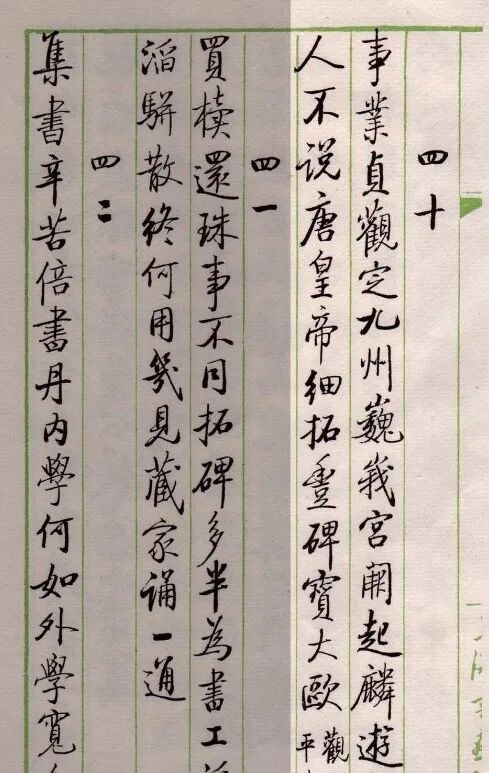 四十
事業貞觀定九州巍峩宮闕起麟遊
人不说唐皇帝细拓豐碑寶大歐
觀
平
四一
買櫝還珠事不同拓碑多半為書工
滔駢散終何用幾見藏家誦一通
四二
集書辛苦倍書丹内學何如外學寬